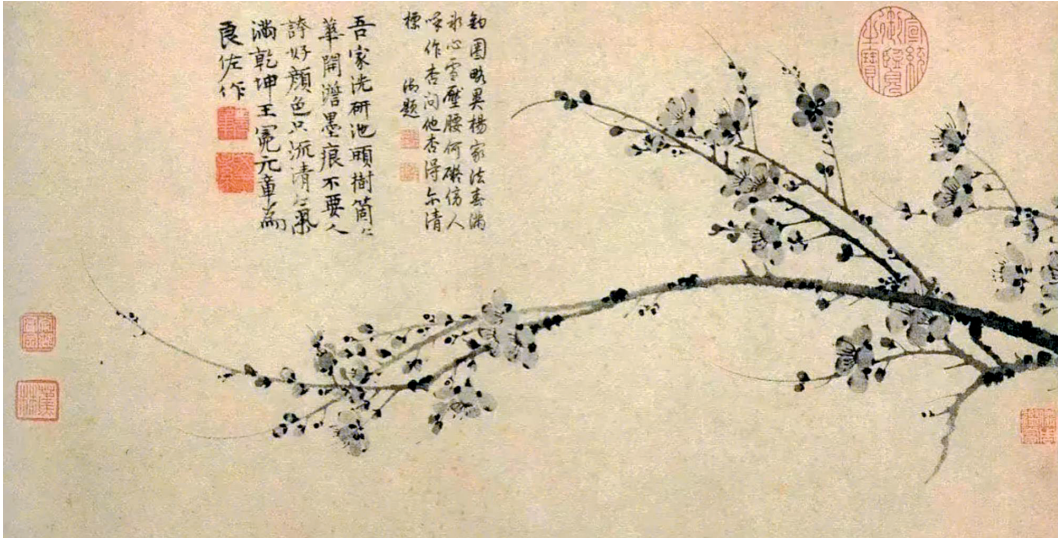 宣統御覽之寶
鈎圈略異楊家法春滿
冰心雪壓腰何礙傍人
呼作杏問他杏得尒清
標 御題
吾家洗研池頭樹箇〻
華開澹墨痕不要人
誇好顏色只流清氣
滿乾坤王冕元章為
良佐作